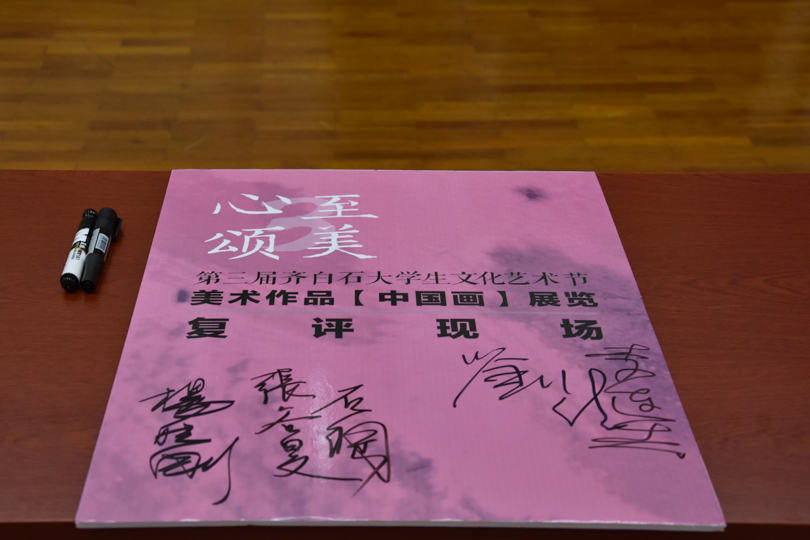 心至
颂美
第三届齐白石大学生文化艺术节
美术作品【中国画】展览
复评现场
楊胜刚
張名昊